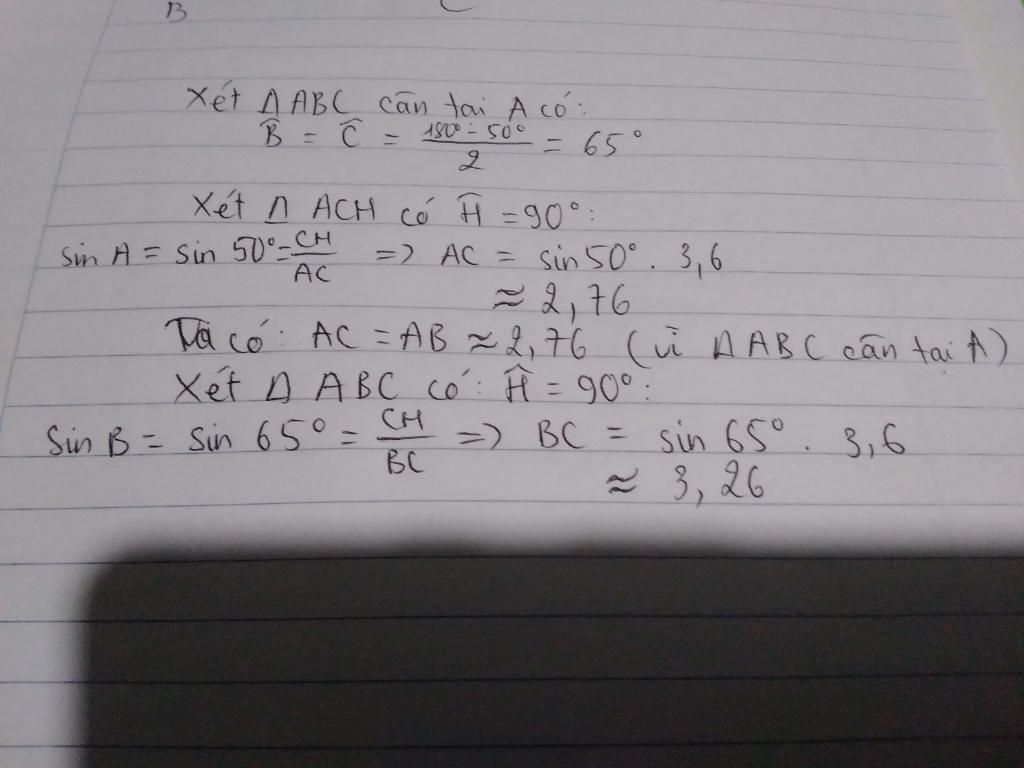 B C
Xét Δ ABC cân tại A có:
B̂ = Ĉ = (180° - 50°)/2 = 65°
Xét Δ ACH có Ĥ = 90°:
sin A = sin 50° = CH/AC => AC = sin 50° . 3,6
≈ 2,76
Ta có: AC = AB ≈ 2,76 (vì Δ ABC cân tại A)
Xét Δ ABC có: Ĥ = 90°:
Sin B = sin 65° = CH/BC => BC = sin 65° . 3,6
≈ 3,26